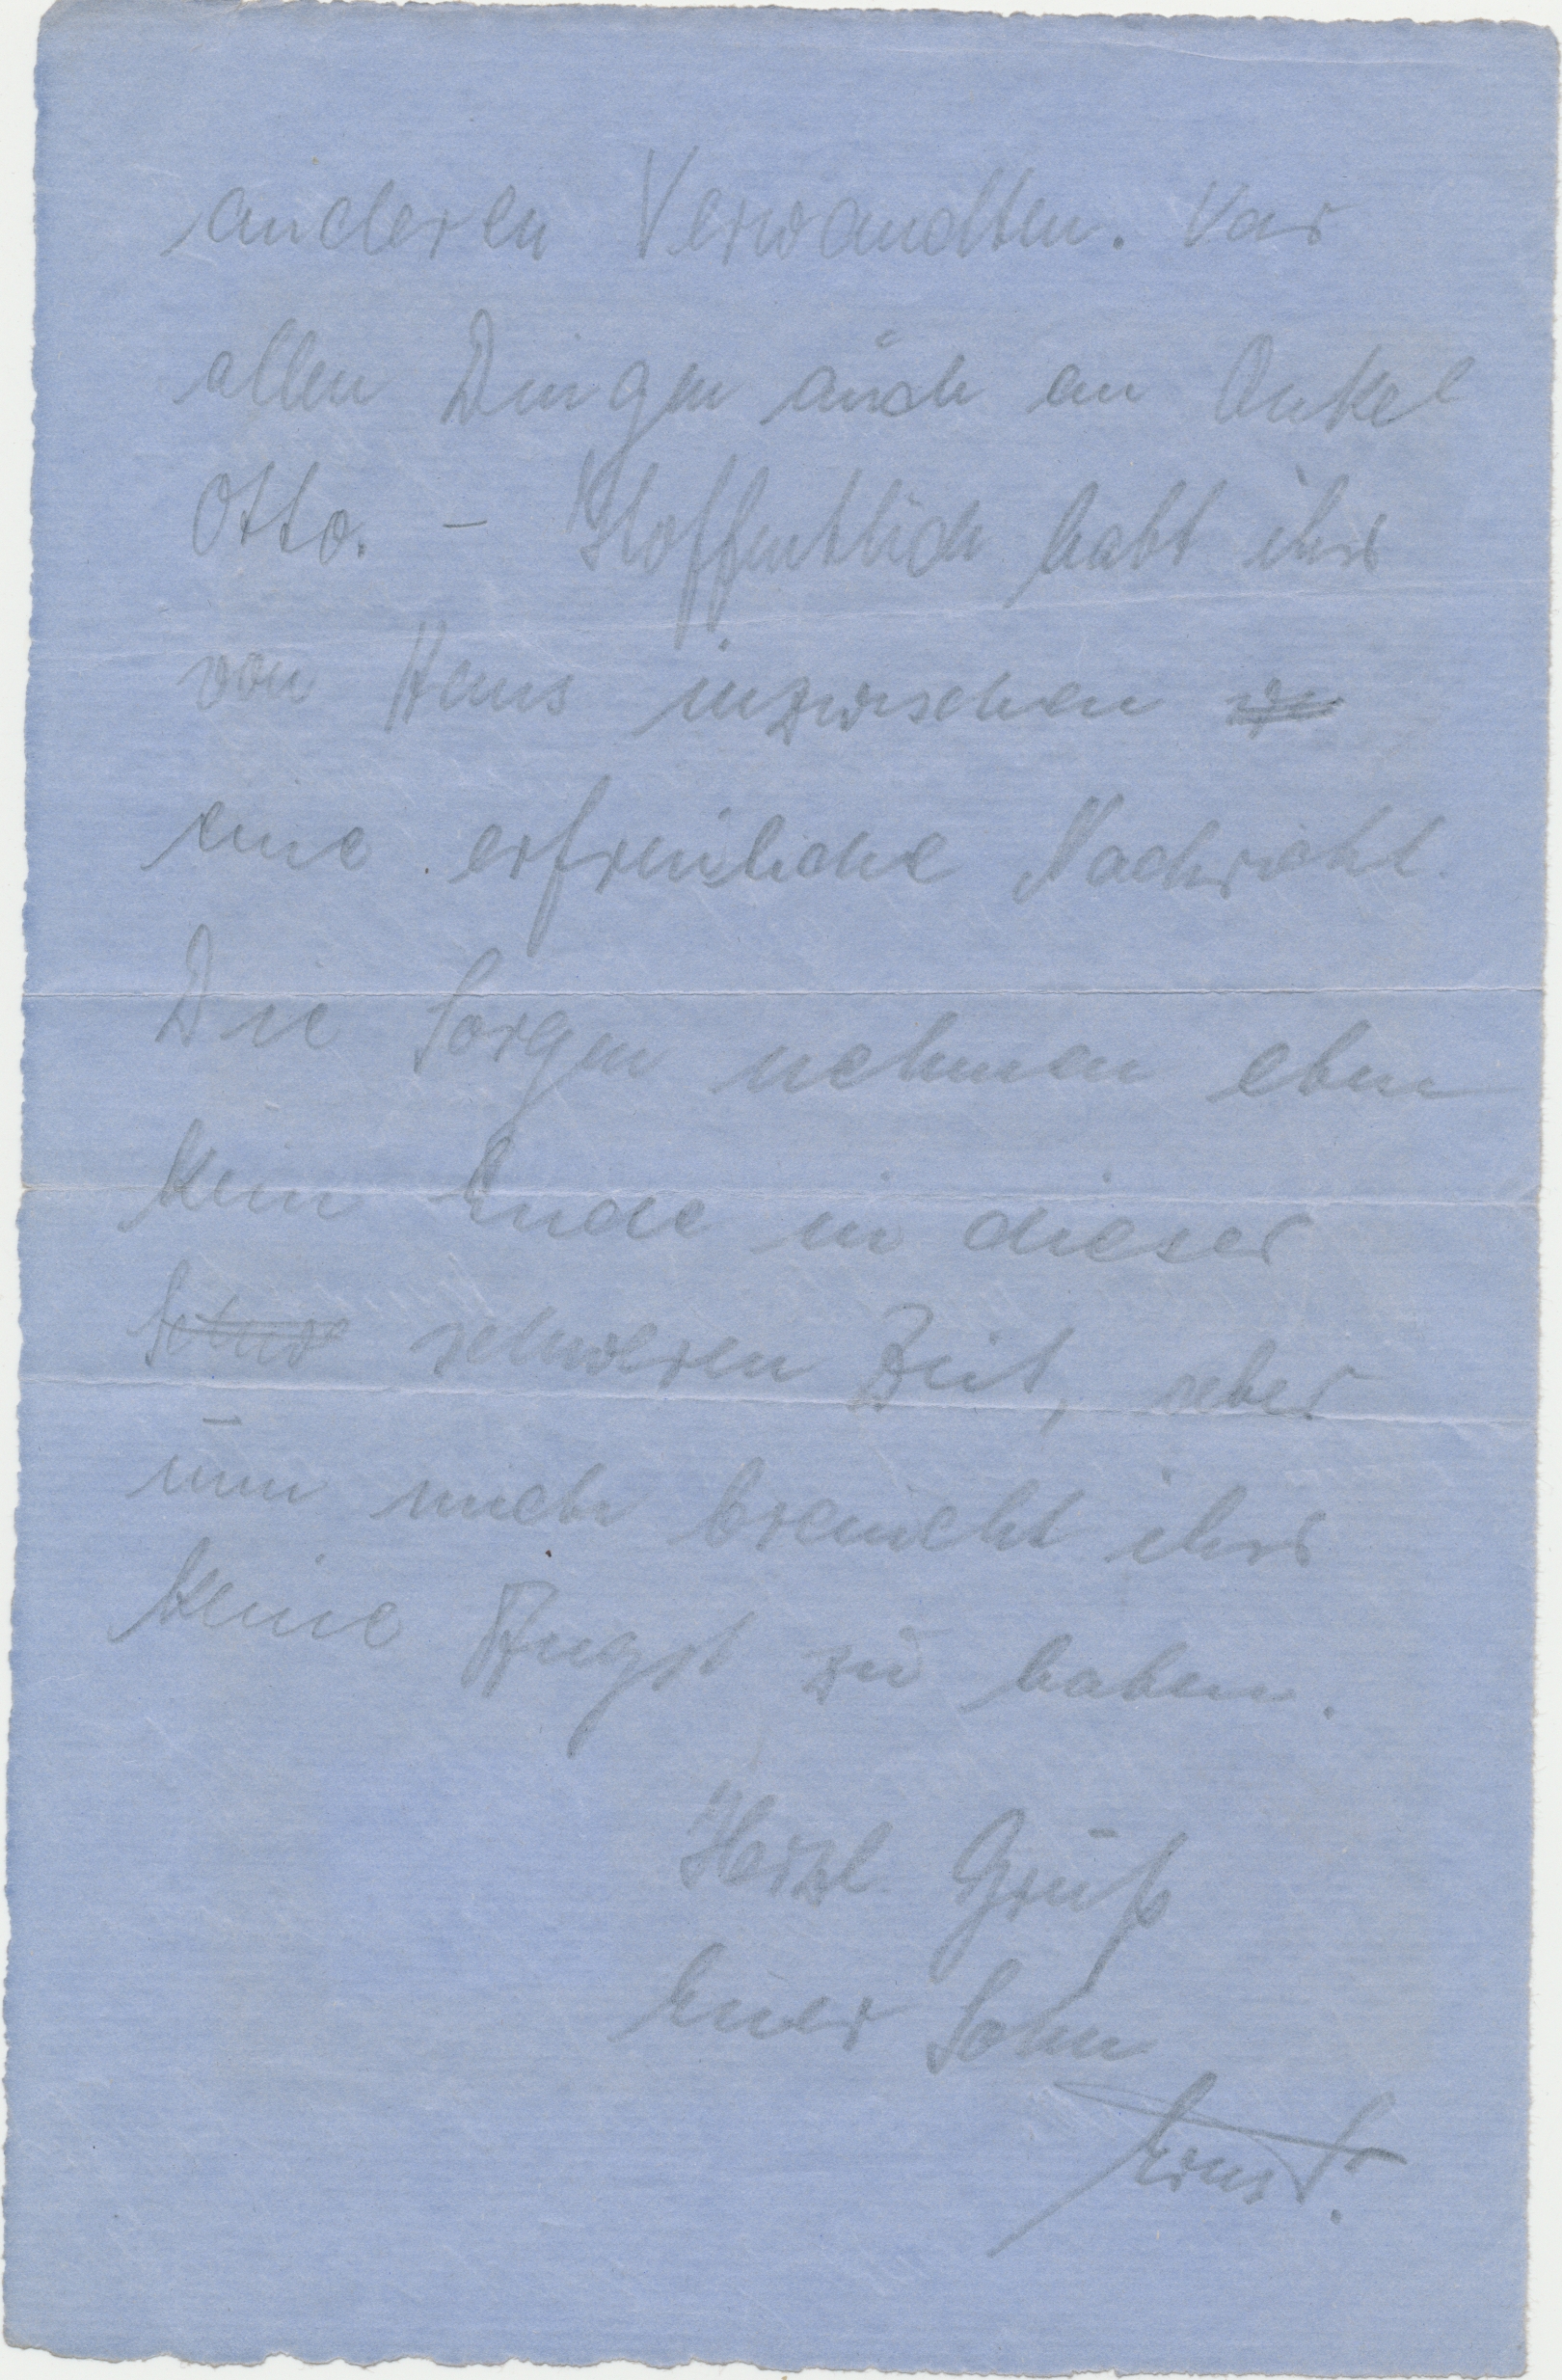 anderen Verwandten. Vor
allen Dingen auch an Onkel
Otto. - Hoffentlich habt ihr
von Hans inzwischen
eine erfreuliche Nachricht.
Die Sorgen nehmen eben
kein Ende in dieser
Schwe schweren Zeit, aber
um mich braucht ihr
keine Angst zu haben.
Herzl. Gruß
Euer Sohn
Ernst.